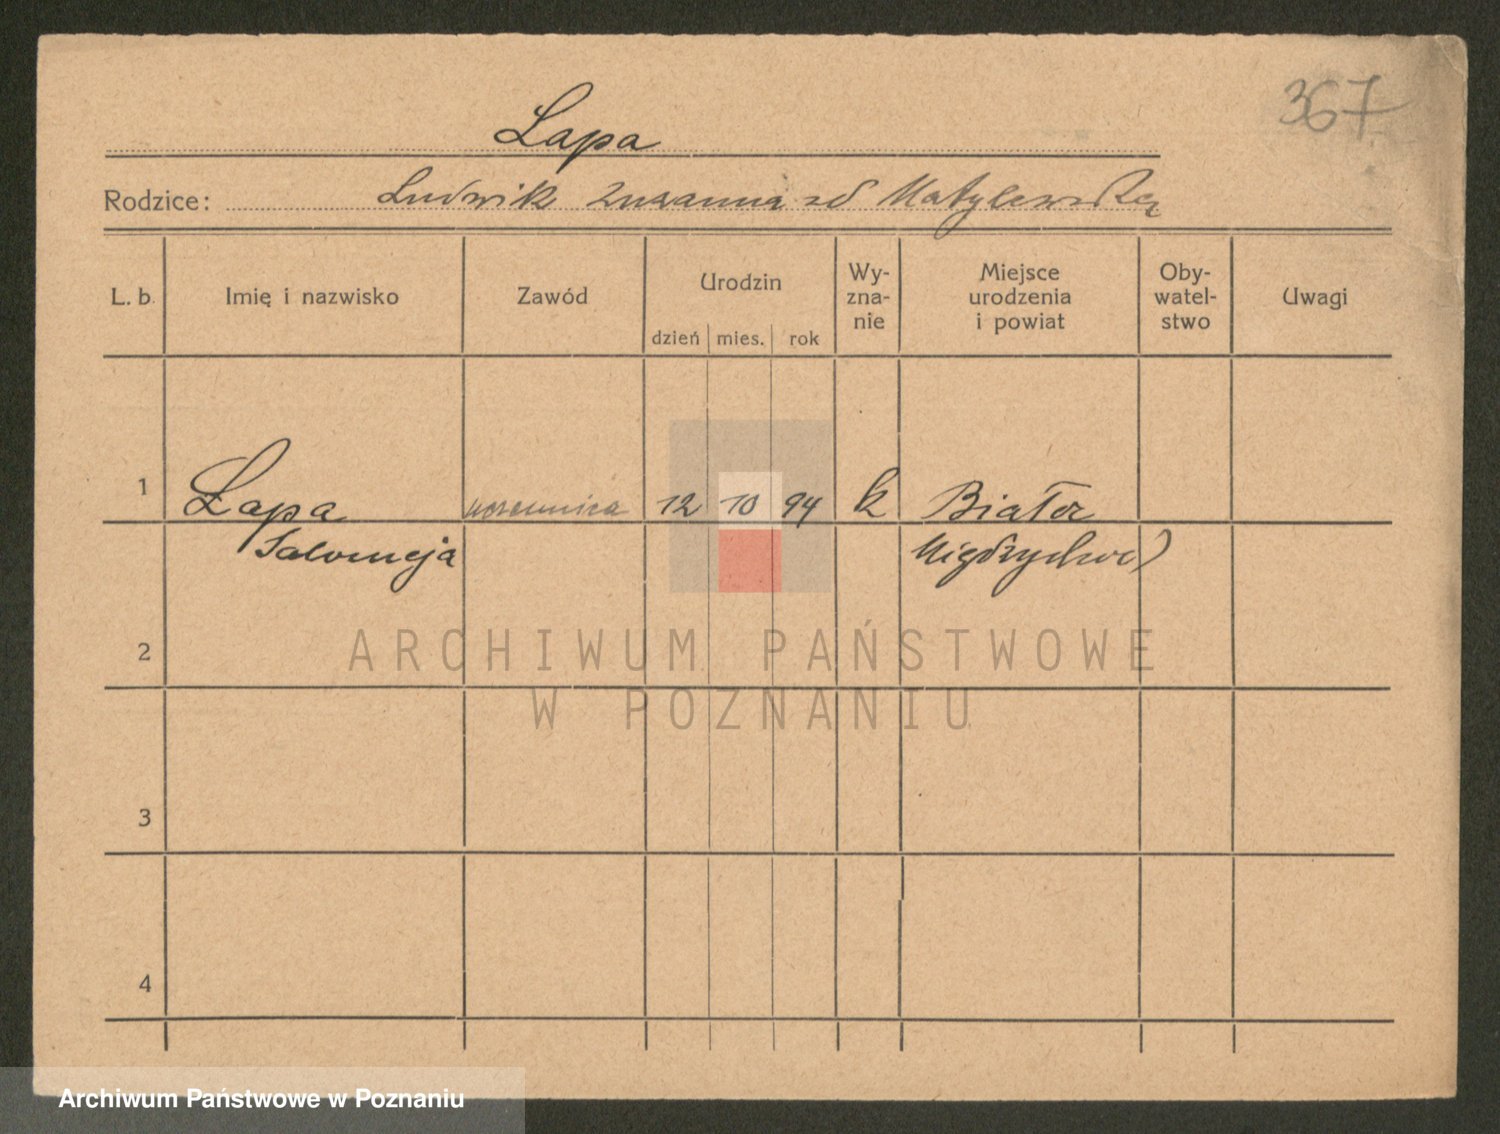 367
Lapa
Rodzice: Ludwik Zuzanna zd Matylewska
L. b. Imię i nazwisko Zawód Urodzin Wy-zna-nie Miejsce urodzenia i powiat Oby-watel-stwo Uwagi
dzień mies. rok
1 Łapa 12 10 94 k
Salomeja Międzychod
2
ARCHIWUM PAŃSTWOWE
W POZNANIU
3
4
Archiwum Państwowe w Poznaniu